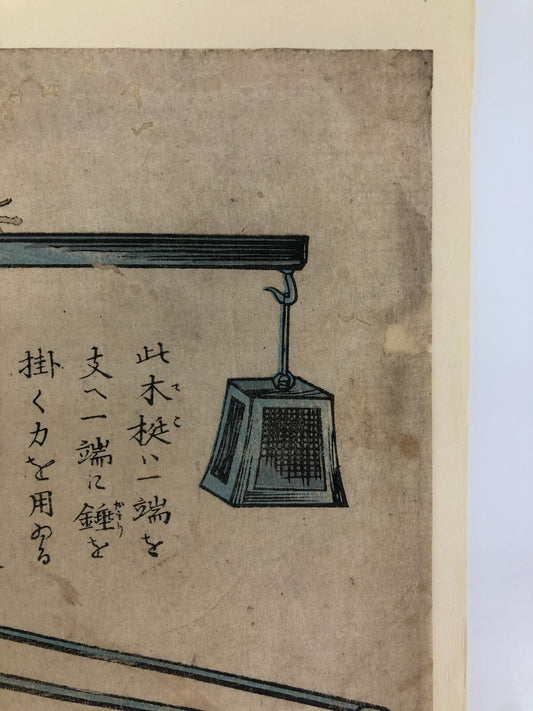 此木梃ハ一端を
支へ一端に錘を
掛く力を用ゐる
てこ
おもり